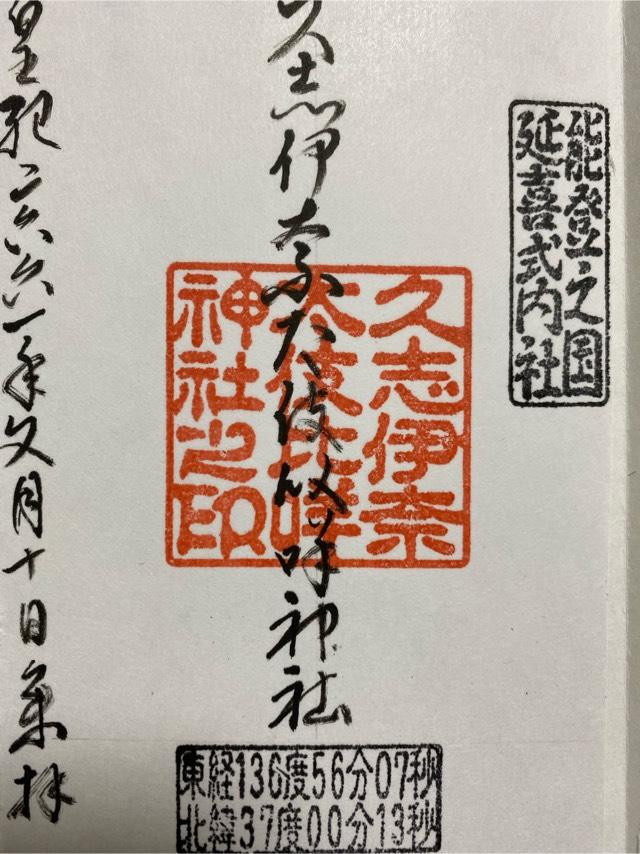 能登之国
延喜式内社
久志伊奈太伎比咩神社
久志伊奈
太伎比咩
神社之印
皇紀二六八一年文月十日奉拝
東経136度56分07秒
北緯37度00分13秒